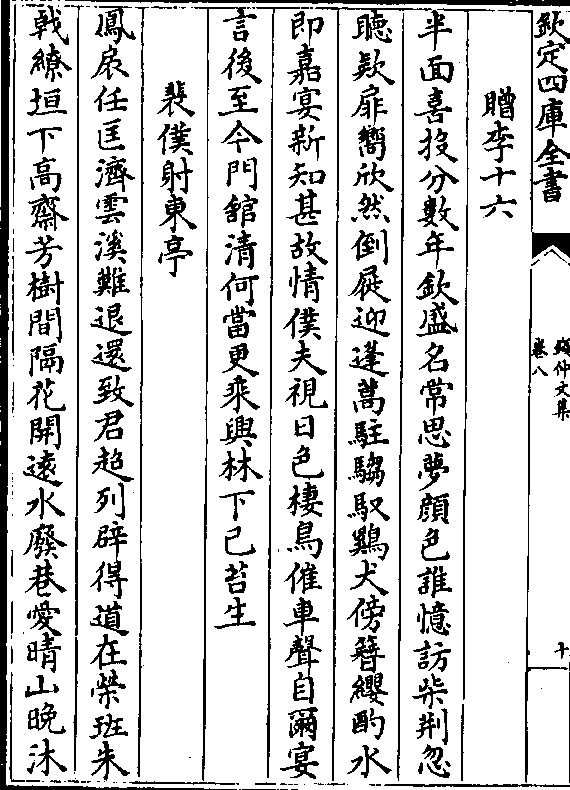 欽定四庫全書
錢仲文集
卷八
十
贈李十六
半面喜投分數年欽盛名常思夢顔色誰憶訪柴荆忽
聽欵扉嚮欣然倒屣迎逢蒿駐騶馭鷄犬傍簪纓酌水
即嘉宴新知甚故情僕夫視日色棲鳥催車聲自爾宴
言後至今門館清何當更乘興林下已苔生
裴僕射東亭
鳳扆任匡濟雲溪難退還致君超列辟得道在榮班朱
戟繚垣下高齋芳樹間隔花開遠水廢巷愛晴山晚沐